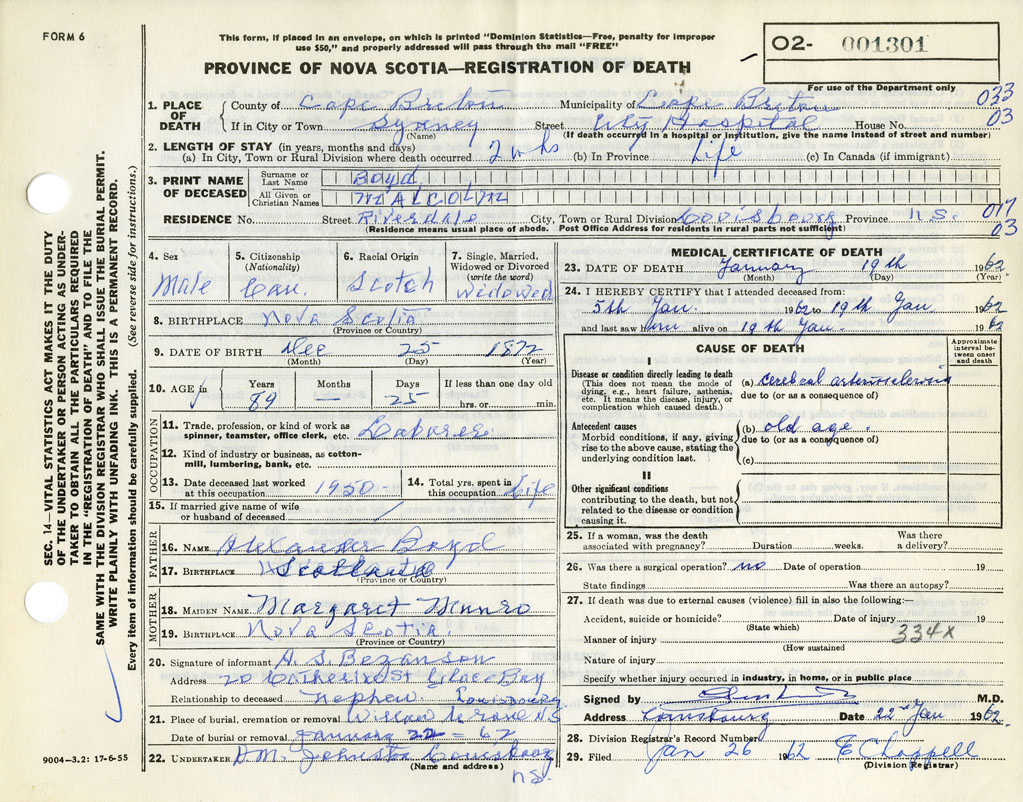 FORM 6
This form, if placed in an envelope, on which is printed "Dominion Statistics—Free, penalty for improper
use $50," and properly addressed will pass through the mail "FREE"
PROVINCE OF NOVA SCOTIA—REGISTRATION OF DEATH
02- 001301
For use of the Department only
033
03
SEC. 14—VITAL STATISTICS ACT MAKES IT THE DUTY
OF THE UNDERTAKER OR PERSON ACTING AS UNDER-
TAKER TO OBTAIN ALL THE PARTICULARS REQUIRED
IN THE "REGISTRATION OF DEATH" AND TO FILE THE
SAME WITH THE DIVISION REGISTRAR WHO SHALL ISSUE THE BURIAL PERMIT.
WRITE PLAINLY WITH UNFADING INK. THIS IS A PERMANENT RECORD.
Every item of information should be carefully supplied. (See reverse side for instructions.)
1. PLACE OF DEATH County of Cape Breton Municipality of Cape Breton
If in City or Town Sydney Street City Hospital House No.
(Name) (If death occurred in a hospital or institution, give the name instead of street and number)
2. LENGTH OF STAY (in years, months and days)
(a) In City, Town or Rural Division where death occurred 2 wks (b) In Province Life (c) In Canada (if immigrant)
3. PRINT NAME OF DECEASED Surname or Last Name Boyd
All Given or Christian Names MALCOLM
RESIDENCE No. Street Riversdale City, Town or Rural Division Louisbourg Province N.S. 017
03
(Residence means usual place of abode. Post Office Address for residents in rural parts not sufficient)
4. Sex Male
5. Citizenship (Nationality) Can.
6. Racial Origin Scotch
7. Single, Married, Widowed or Divorced (write the word) Widowed
8. BIRTHPLACE Nova Scotia
(Province or Country)
9. DATE OF BIRTH Dec 25 1872
(Month) (Day) (Year)
10. AGE Years 89 Months — Days 25 If less than one day old hrs. or min.
OCCUPATION
11. Trade, profession, or kind of work as spinner, teamster, office clerk, etc. Laborer
12. Kind of industry or business, as cotton-mill, lumbering, bank, etc.
13. Date deceased last worked at this occupation 1950
14. Total yrs. spent in this occupation Life
15. If married give name of wife or husband of deceased
FATHER
16. NAME Alexander Boyd
17. BIRTHPLACE Scotland
(Province or Country)
MOTHER
18. MAIDEN NAME Margaret Munro
19. BIRTHPLACE Nova Scotia.
(Province or Country)
20. Signature of informant A. S. Bezanson
Address 20 Catherine St Glace Bay
Relationship to deceased Nephew. Louisbourg
21. Place of burial, cremation or removal Grove N.S
Date of burial or removal January 22 = 62
22. UNDERTAKER D.M. Johnston Louisbourg
(Name and address) N.S.
9004—3.2: 17-6-55
MEDICAL CERTIFICATE OF DEATH
23. DATE OF DEATH January 19th 1962
(Month) (Day) (Year)
24. I HEREBY CERTIFY that I attended deceased from:
5th Jan. 1962 to 19th Jan 1962
and last saw him alive on 19th Jan. 1962
CAUSE OF DEATH
Approximate interval between onset and death
I
Disease or condition directly leading to death
(This does not mean the mode of dying, e.g., heart failure, asthenia, etc. It means the disease, injury, or complication which caused death.)
(a) cerebral arteriosclerosis
due to (or as a consequence of)
Antecedent causes
Morbid conditions, if any, giving rise to the above cause, stating the underlying condition last.
(b) old age.
due to (or as a consequence of)
(c)
II
Other significant conditions
contributing to the death, but not related to the disease or condition causing it.
25. If a woman, was the death associated with pregnancy? Duration weeks. Was there a delivery?
26. Was there a surgical operation? no Date of operation 19
State findings Was there an autopsy?
27. If death was due to external causes (violence) fill in also the following:—
Accident, suicide or homicide? Date of injury 19
(State which) 334X
Manner of injury
(How sustained
Nature of injury
Specify whether injury occurred in industry, in home, or in public place
Signed by M.D.
Address Louisbourg Date 22nd Jan 1962.
28. Division Registrar's Record Number
29. Filed Jan 26 1962 E Chappell
(Division Registrar)